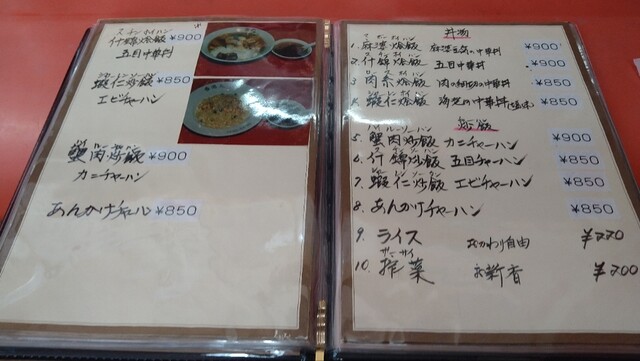 什錦燴飯 ¥900
五目中華丼
蝦仁炒飯 ¥850
エビチャーハン
蟹肉炒飯 ¥900
カニチャーハン
あんかけチャーハン ¥850
1. 麻婆燴飯 麻婆豆腐の中華丼 ¥900
2. 什錦燴飯 五目中華丼 ¥900
3. 肉糸燴飯 肉の細切の中華丼 ¥850
4. 蝦仁燴飯 ¥850
炒飯
5. 蟹肉炒飯 カニチャーハン ¥900
6. 什錦炒飯 五目チャーハン ¥850
7. 蝦仁炒飯 エビチャーハン ¥850
8. あんかけチャーハン ¥850
9. ライス おかわり自由 ¥220
ザーサイ
10. 搾菜 お新香 ¥200